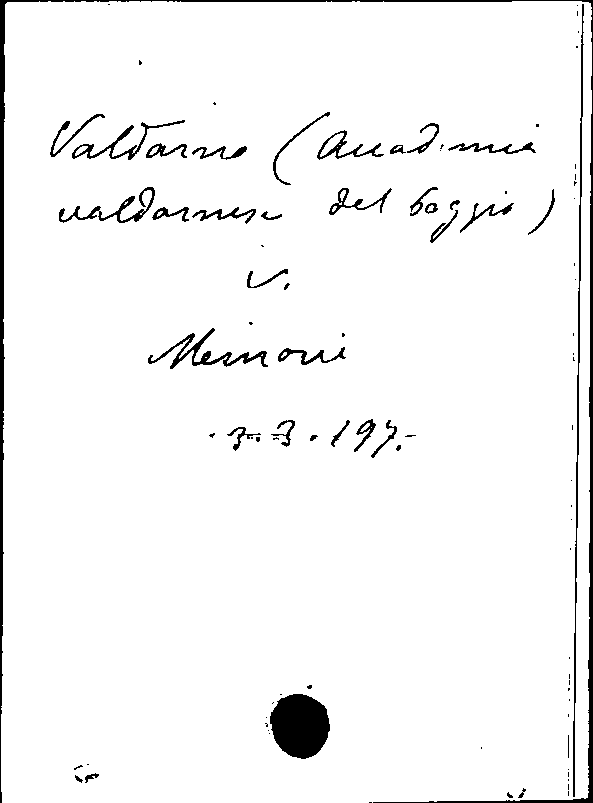 Valdarno (Accademia
valdarnese del Poggio)
v.
Memorie
3.3.197.